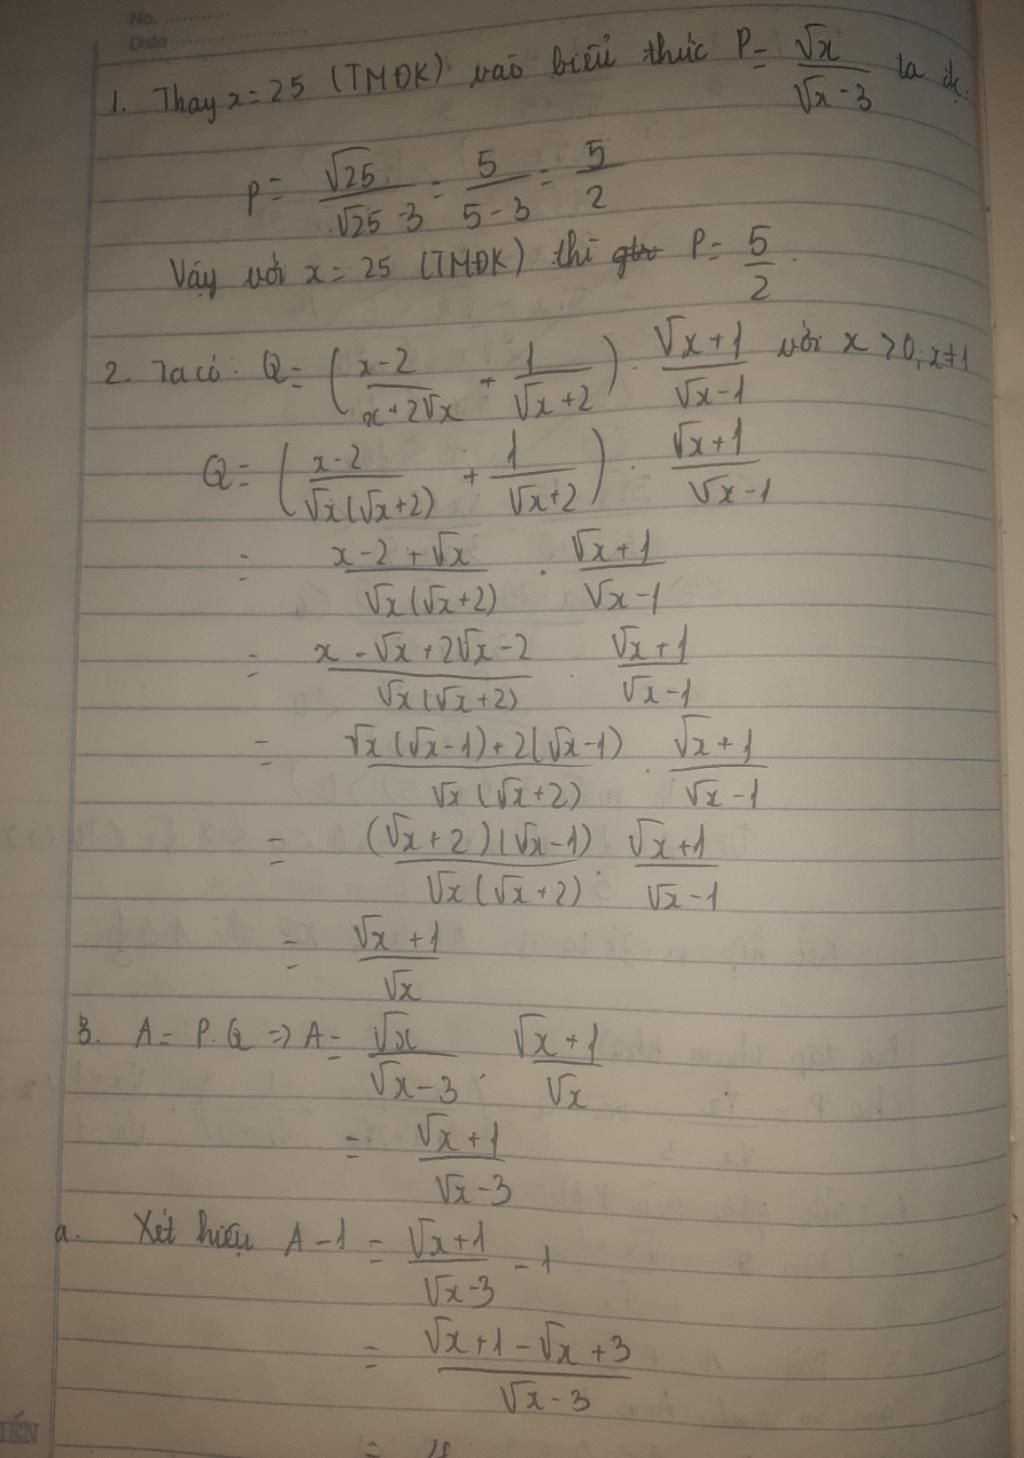 No. ............
Date .....................
1. Thay x = 25 (TMĐK) vào biểu thức P = √x / (√x - 3) ta đc.
P = √25 / (√25 - 3) = 5 / (5 - 3) = 5/2
Vậy với x = 25 (TMĐK) thì P = 5/2.
2. Ta có: Q = ((x - 2) / (x + 2√x) + 1 / (√x + 2)) . (√x + 1) / (√x - 1) với x > 0; x ≠ 1
Q = ((x - 2) / (√x(√x + 2)) + 1 / (√x + 2)) . (√x + 1) / (√x - 1)
= (x - 2 + √x) / (√x(√x + 2)) . (√x + 1) / (√x - 1)
= (x - √x + 2√x - 2) / (√x(√x + 2)) . (√x + 1) / (√x - 1)
= (√x(√x - 1) + 2(√x - 1)) / (√x(√x + 2)) . (√x + 1) / (√x - 1)
= ((√x + 2)(√x - 1)) / (√x(√x + 2)) . (√x + 1) / (√x - 1)
= (√x + 1) / √x
3. A = P.Q => A = √x / (√x - 3) . (√x + 1) / √x
= (√x + 1) / (√x - 3)
a. Xét hiệu A - 1 = (√x + 1) / (√x - 3) - 1
= (√x + 1 - √x + 3) / (√x - 3)
=